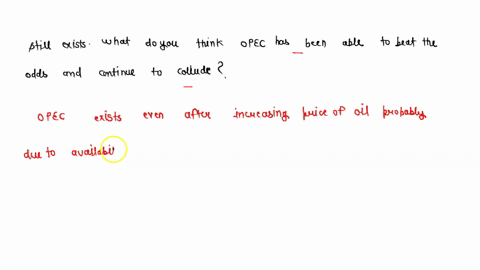 still exists. what do you think OPEC has been able to beat the
odds and continue to collude?
OPEC exists even after increasing price of oil probably
due to availabil